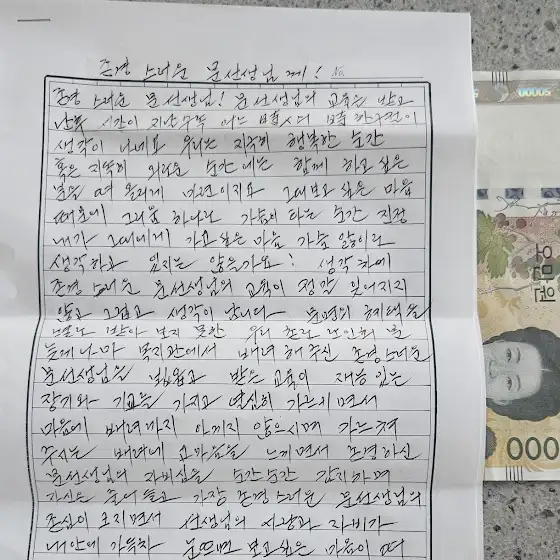 존경 스러운 문선생님 께! No.
존경 스러운 문선생님! 문선생님의 교육을 받고
시간이
생각이 나네요 우리는 지극히 행복한 순간
혹은 지극히 외로운 순간에는 함께 하고 싶은
분을 떠 올리게 마련이지요 그대보고 싶은 마음
때문에 그리움 하나로 가슴이 타는 순간 지정
내가 그대에게 가고싶은 마음 가슴 앓이라
생각하고 있지는 않을까요! 생각 하에
존경 스러운 문선생님의 교육이 정말 잊어지지
않고 그립고 생각이 납니다 문명의 혜택을
받아 보지 못한 우리
늦게나마 복지관에서 배려 해 주신 존경스러운
문선생님을 뵈옵고 받은 교육이 재능 있는
장기와 기교를 가지고 열심히 가르치면서
마음에 배려까지 아끼지 않으시며 가르쳐
주시는 배려에 고마움을 느끼면서 존경하신
문선생님의 자비심을 순간순간 감지하며
가장 존경 스러운 문선생님의
존심이 선생님의 사랑과 자비가
내 안에 가득차 눈뜨면 보고싶은 마음이 떠
50000
오만원
000